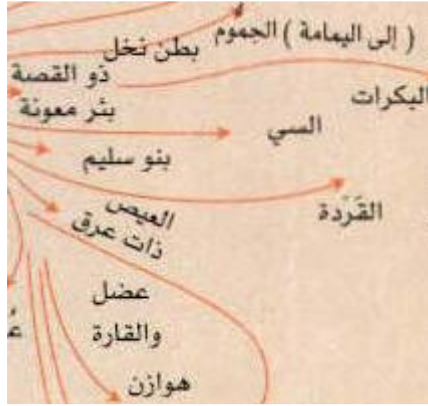 ( إلى اليمامة ) الجموم
بطن نخل
ذو القصة
البكرات
بئر معونة
السي
بنو سليم
القَرَدة
العيص
ذات عرق
عضل
والقارة
هوازن